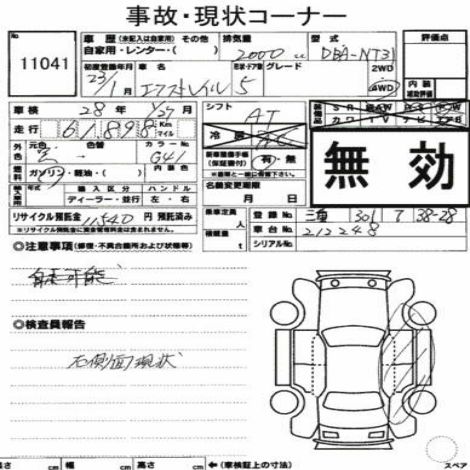 事故・現状コーナー
11041
車歴 (未記入は自家用) その他 排気量 型式 評価点
自家用・レンター・( ) 2000 cc DBA-NT31
初度登録年月 車名 形状・ドア数 グレード 2WD
23/1月 エクストレイル 5 4WD 内装
補助評価
車検 28年 1/27月 シフト AT
走行 61898 Km マイル 冷房
無効
外色 元色 色替
G41
燃料 ガソリン・軽油・( ) 有・無
輸入車 輸入区分 ハンドル 名義変更期限
ディーラー・並行 左・右 月 日
リサイクル預託金 11540 円 預託済み 乗車定員 人 登録No. 三重 301 ┐ 38-28
※リサイクル預託金に資金管理料金は含まれません。 積載量 t 車台No. 212248
◎注意事項 (修復・不具合箇所および状態等) シリアルNo.
自走可能
◎検査員報告
右側面現状
長さ cm 幅 cm 高さ cm ←(車検証上の寸法) スペア